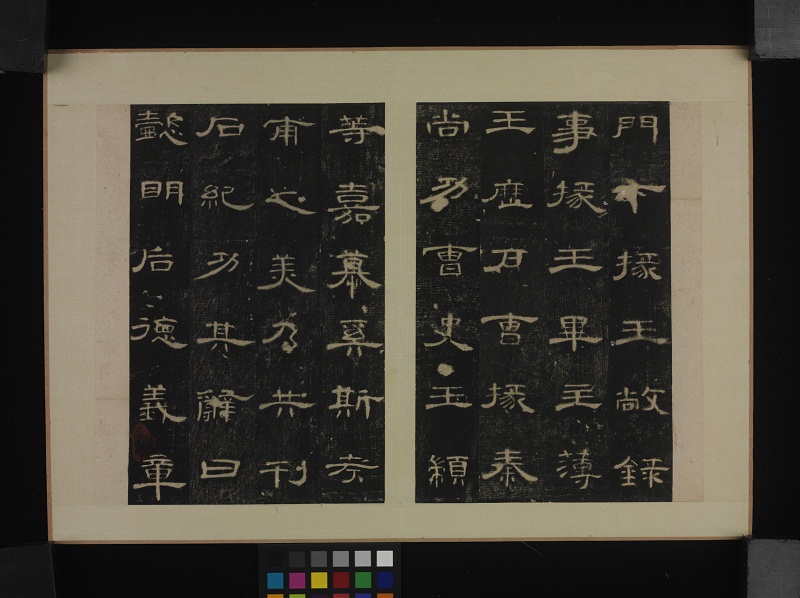 門下掾王敞錄
事掾王畢主薄
王歷戶曹掾秦
尚功曹史王顓
等嘉慕奚斯考
甫之美乃共刊
石紀功其辭曰
懿明后德義章